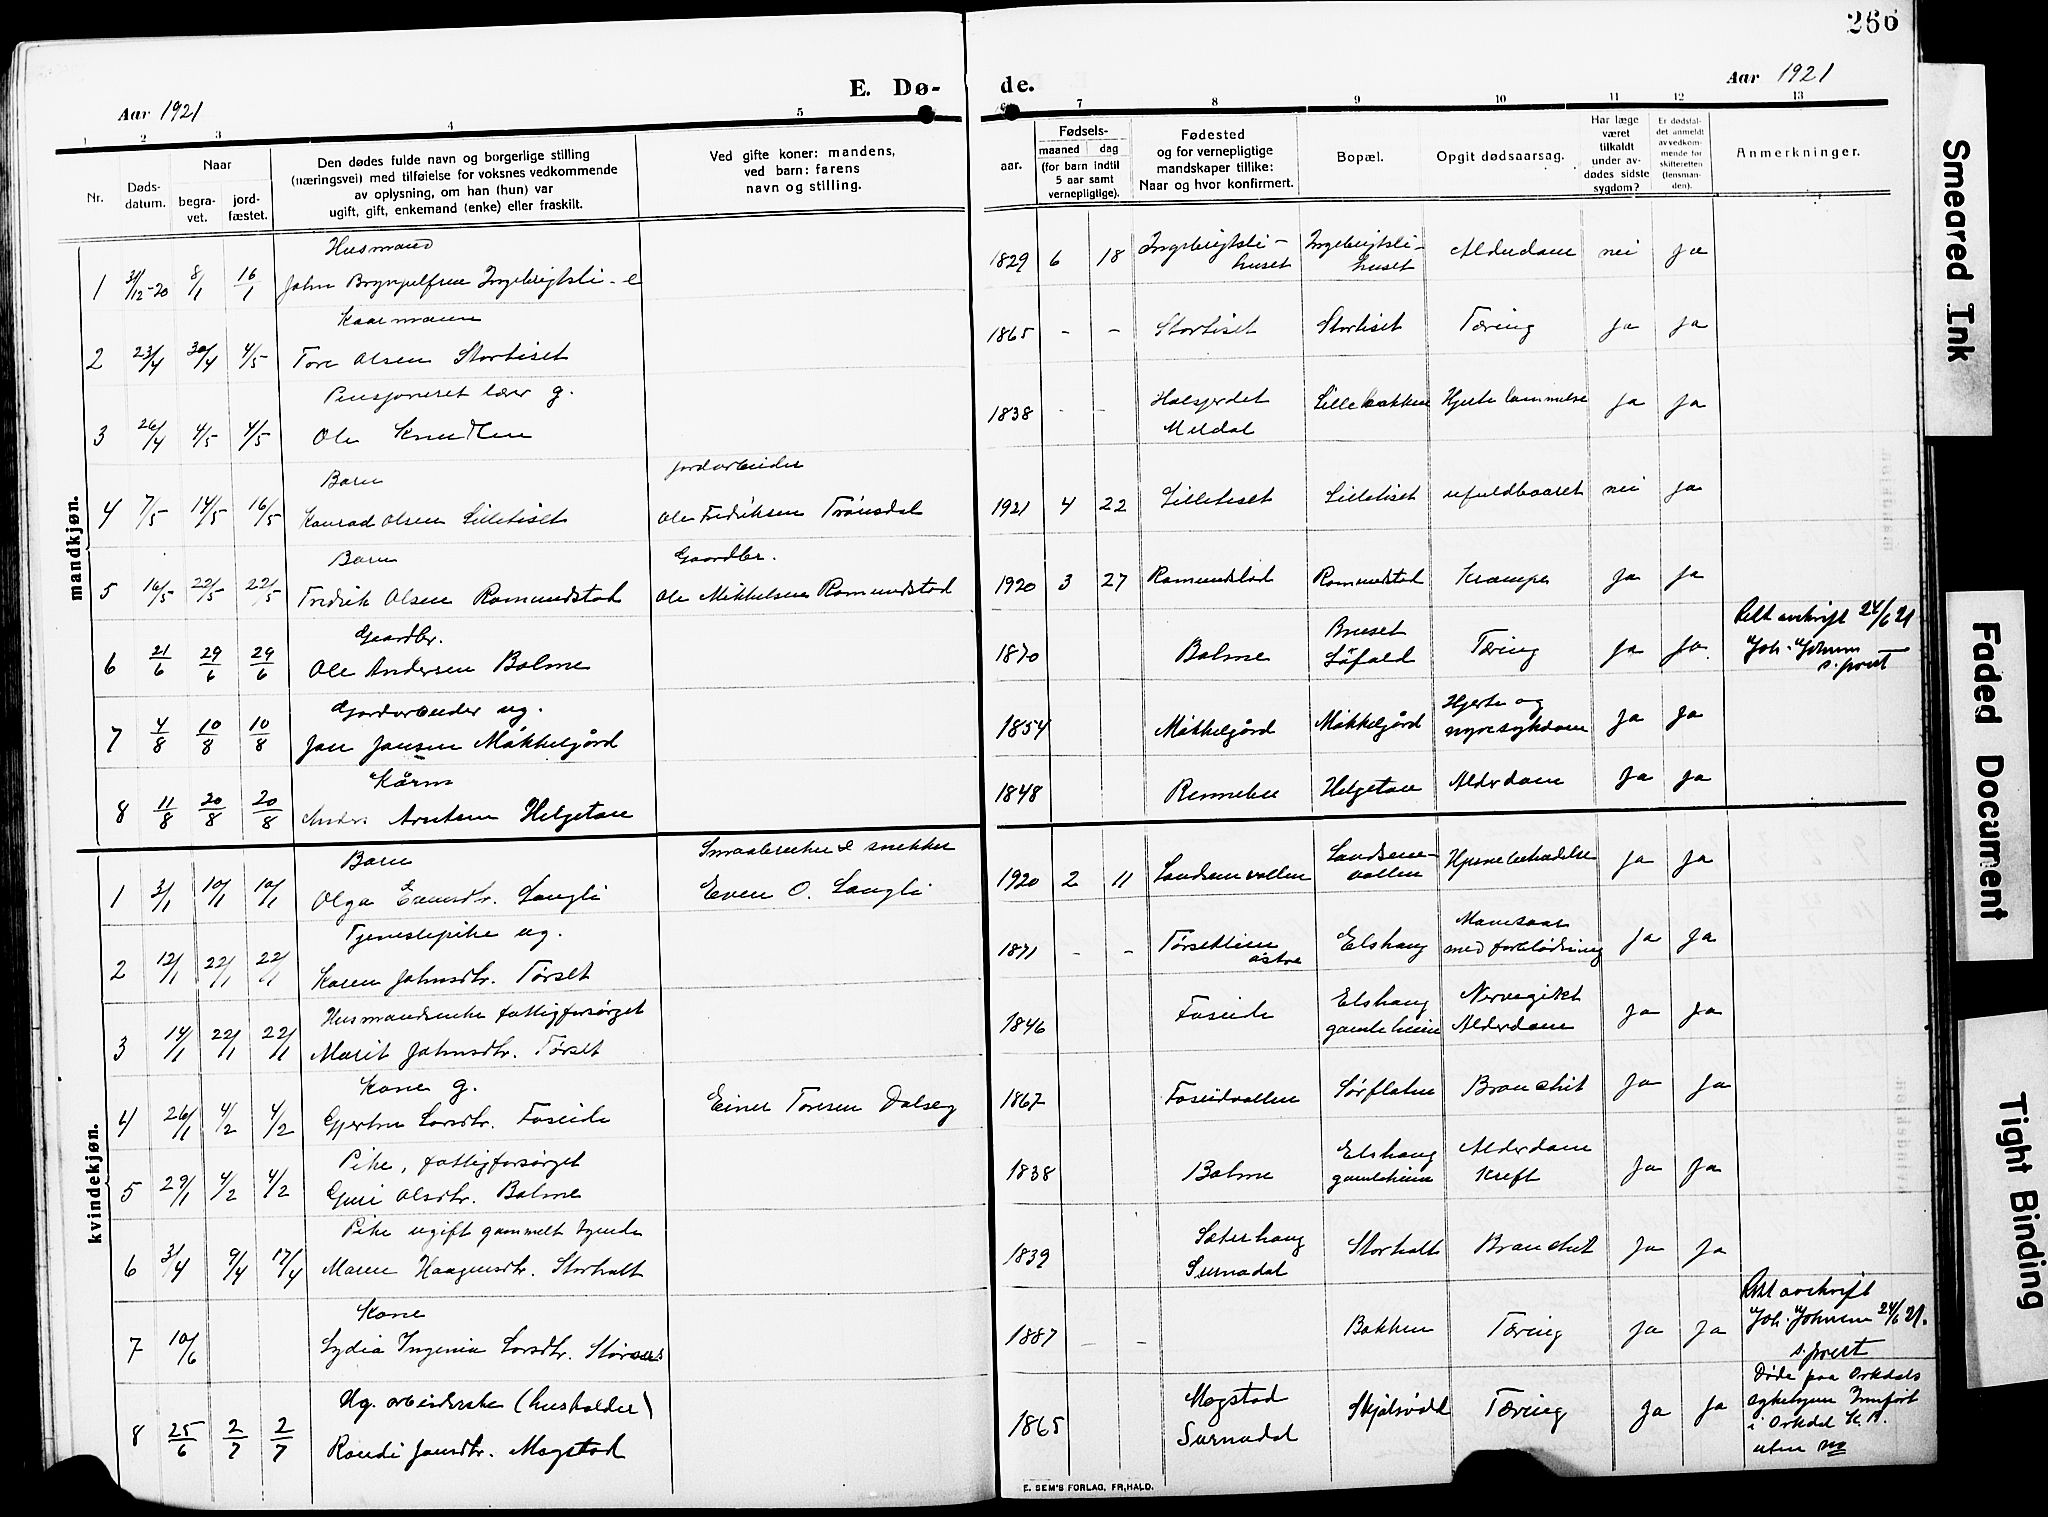 266
Aar 1921
E. Dø-
de.
Aar 1921
1 2 3 4 5 6 7 8 9 10 11 12 13
Nr.
Døds-
datum.
Naar
begra-
vet.
jord-
fæstet.
Den dødes fulde navn og borgerlige stilling
(næringsvei) med tilføielse for voksnes vedkommende
av oplysning, om han (hun) var
ugift, gift, enkemand (enke) eller fraskilt.
Ved gifte koner: mandens,
ved barn: farens
navn og stilling.
Fødsels-
aar.
maaned dag
(for barn indtil
5 aar samt
vernepligtige).
Fødested
og for vernepligtige
mandskaper tillike:
Naar og hvor konfirmert.
Bopæl.
Opgit dødsaarsag.
Har læge
været
tilkaldt
under av-
dødes sidste
sygdom?
Er dødsfal-
det anmeldt
av vedkom-
mende for
skifteretten
(lensman-
den).
Anmerkninger.
mandkjøn.
Husmand
1 31/12-20 8/1 16/1 John Brynjulfsen Ingebrigtsli-e 1829 6 18 Ingebrigtsli-huset Ingebrigtsli-huset Alderdom nei Ja
Kaarmann
2 23/4 30/4 4/5 Tore Olsen Stortiset 1865 - - Stortiset Stortiset Tæring Ja Ja
Pensjoneret lærer g.
3 26/4 4/5 4/5 Ole Knudsen 1838 - - Halsjerdet Meldal Lillebakken Hjertelammelse Ja Ja
Barn Jordarbeider
4 7/5 14/5 16/5 Konrad Olsen Lilletiset Ole Fredriksen Trønsdal 1921 4 22 Lilletiset Lilletiset ufuldbaaret nei Ja
Barn Gaardbr.
5 16/5 22/5 22/5 Fredrik Olsen Romundstad Ole Mikkelsen Romundstad 1920 3 27 Romundstad Romundstad Krampe Ja Ja
Gaardbr.
6 21/6 29/6 29/6 Ole Andersen Bolme 1870 Bolme Bruset Løfald Tæring Ja Ja. Ret avskrift 24/6 21
Joh. Johnsen
s. prest
Jordarbeider ug.
7 4/8 10/8 10/8 Jon Jonsen Møkkelgård 1854 Møkkelgård Møkkelgård Hjerte og nyresykdom Ja Ja
Kårm
8 11/8 20/8 20/8 Anders Arntsen Helgetun 1848 Rennebu Helgetun Alderdom Ja Ja
kvindekjøn.
Barn Smaabruker & snekker
1 3/1 10/1 10/1 Olga Evensdtr. Langli Even O. Langli 1920 2 11 Landsemvollen Landsemvollen Hjernebetændelse Ja Ja
Tjenestepike ug.
2 12/1 22/1 22/1 Karen Johnsdtr. Tørset 1871 - - Tørsetlien østre Elshaug Mavesaar med forblødning Ja Ja
Husmandsenke fattigforsørget
3 14/1 22/1 22/1 Marit Johnsdtr. Tørset 1846 Foseide Elshaug gamleheim Nervegikt Alderdom Ja Ja
Kone g.
4 26/1 4/2 4/2 Gjertru Larsdtr. Foseide Einer Toresen Dalseg 1867 Foseidvollen Sørflaten Bronchit Ja Ja
Pike, fattigforsørget
5 29/1 4/2 4/2 Guri Olsdtr. Bolme 1838 Bolme Elshaug gamleheim Alderdom Kreft Ja Ja
Pike ugift gammelt tyende
6 3/4 9/4 17/4 Maren Haagensdtr. Storholt 1839 Sæterhaug Surnadal Storholt Bronchit Ja Ja
Kone
7 10/6 Lydia Ingenia Larsdtr. 1887 - - Bakken Tæring Ja Ja Ret avskrift
Joh. Johnsen 24/6 21.
s. prest
Ug. arbeiderske (husholder)
8 25/6 2/7 2/7 Randi Jonsdtr. Mogstad 1865 Mogstad Surnadal Skjølsvold Tæring Ja Ja Døde paa Orkdals
sykehjem Innført
i Orkdal K. B.
uten no
E. SEM'S FORLAG, FR.HALD.
Smeared Ink
Faded Document
Tight Binding